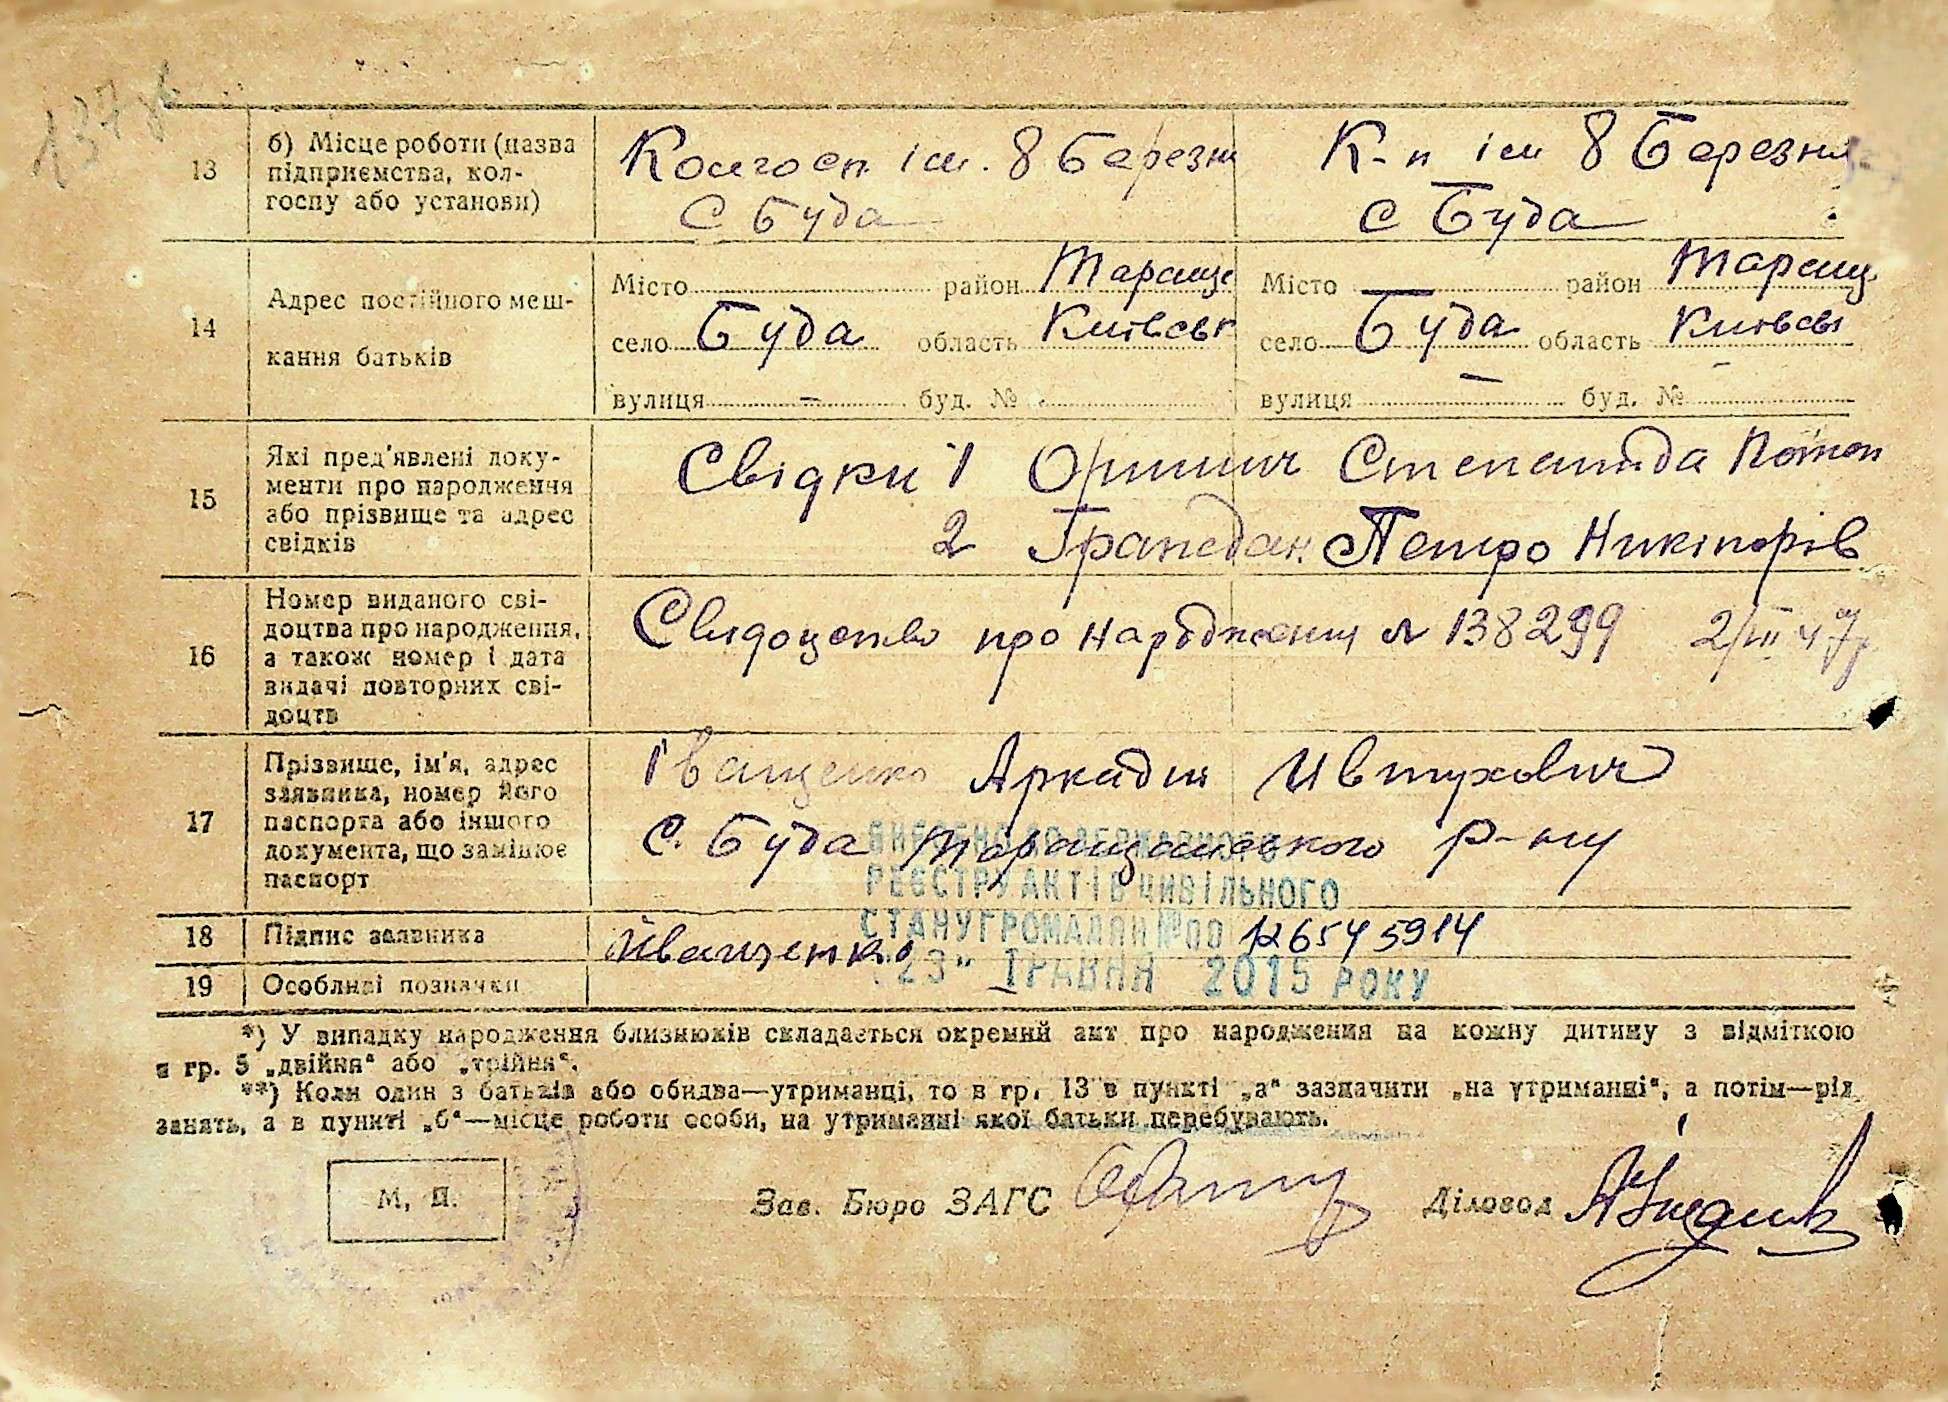 137
13 б) Місце роботи (назва підприємства, колгоспу або установи)
Колгосп ім. 8 Березня
с Буда
К-п ім 8 Березня
с Буда
14 Адрес постійного мешкання батьків
Місто район Тараще
село Буда область Київськ
вулиця – буд. №
Місто район Таращ
село Буда область Київсь
вулиця – буд. №
15 Які пред'явлені документи про народження або прізвище та адрес свідків
Свідки 1 Степанида
2 Петро Никіпорів
16 Номер виданого свідоцтва про народження, а також номер і дата видачі повторних свідоцтв
Свидоцтво про народження № 138299 2/III 47р
17 Прізвище, ім'я, адрес заявника, номер його паспорта або іншого документа, що замінює паспорт
Іващенко Аркадия Ивтухович
с. Буда Таращанського р-ну
ВНЕСЕНО ДО ДЕРЖАВНОГО
РЕЄСТРУ АКТІВ ЦИВІЛЬНОГО
СТАНУ ГРОМАДЯН №00 126545914
"23" ТРАВНЯ 2015 РОКУ
18 Підпис заявника
Иващенко
19 Особливі позначки
*) У випадку народження близнюків складається окремий акт про народження на кожну дитину з відміткою
в гр. 5 „двійня“ або „трійня“.
**) Коли один з батьків або обидва—утриманці, то в гр. 13 в пункті „а“ зазначити „на утриманні“, а потім—рід
занять, а в пункті „б“—місце роботи особи, на утриманні якої батьки перебувають.
М. П.
Зав. Бюро ЗАГС
Діловод